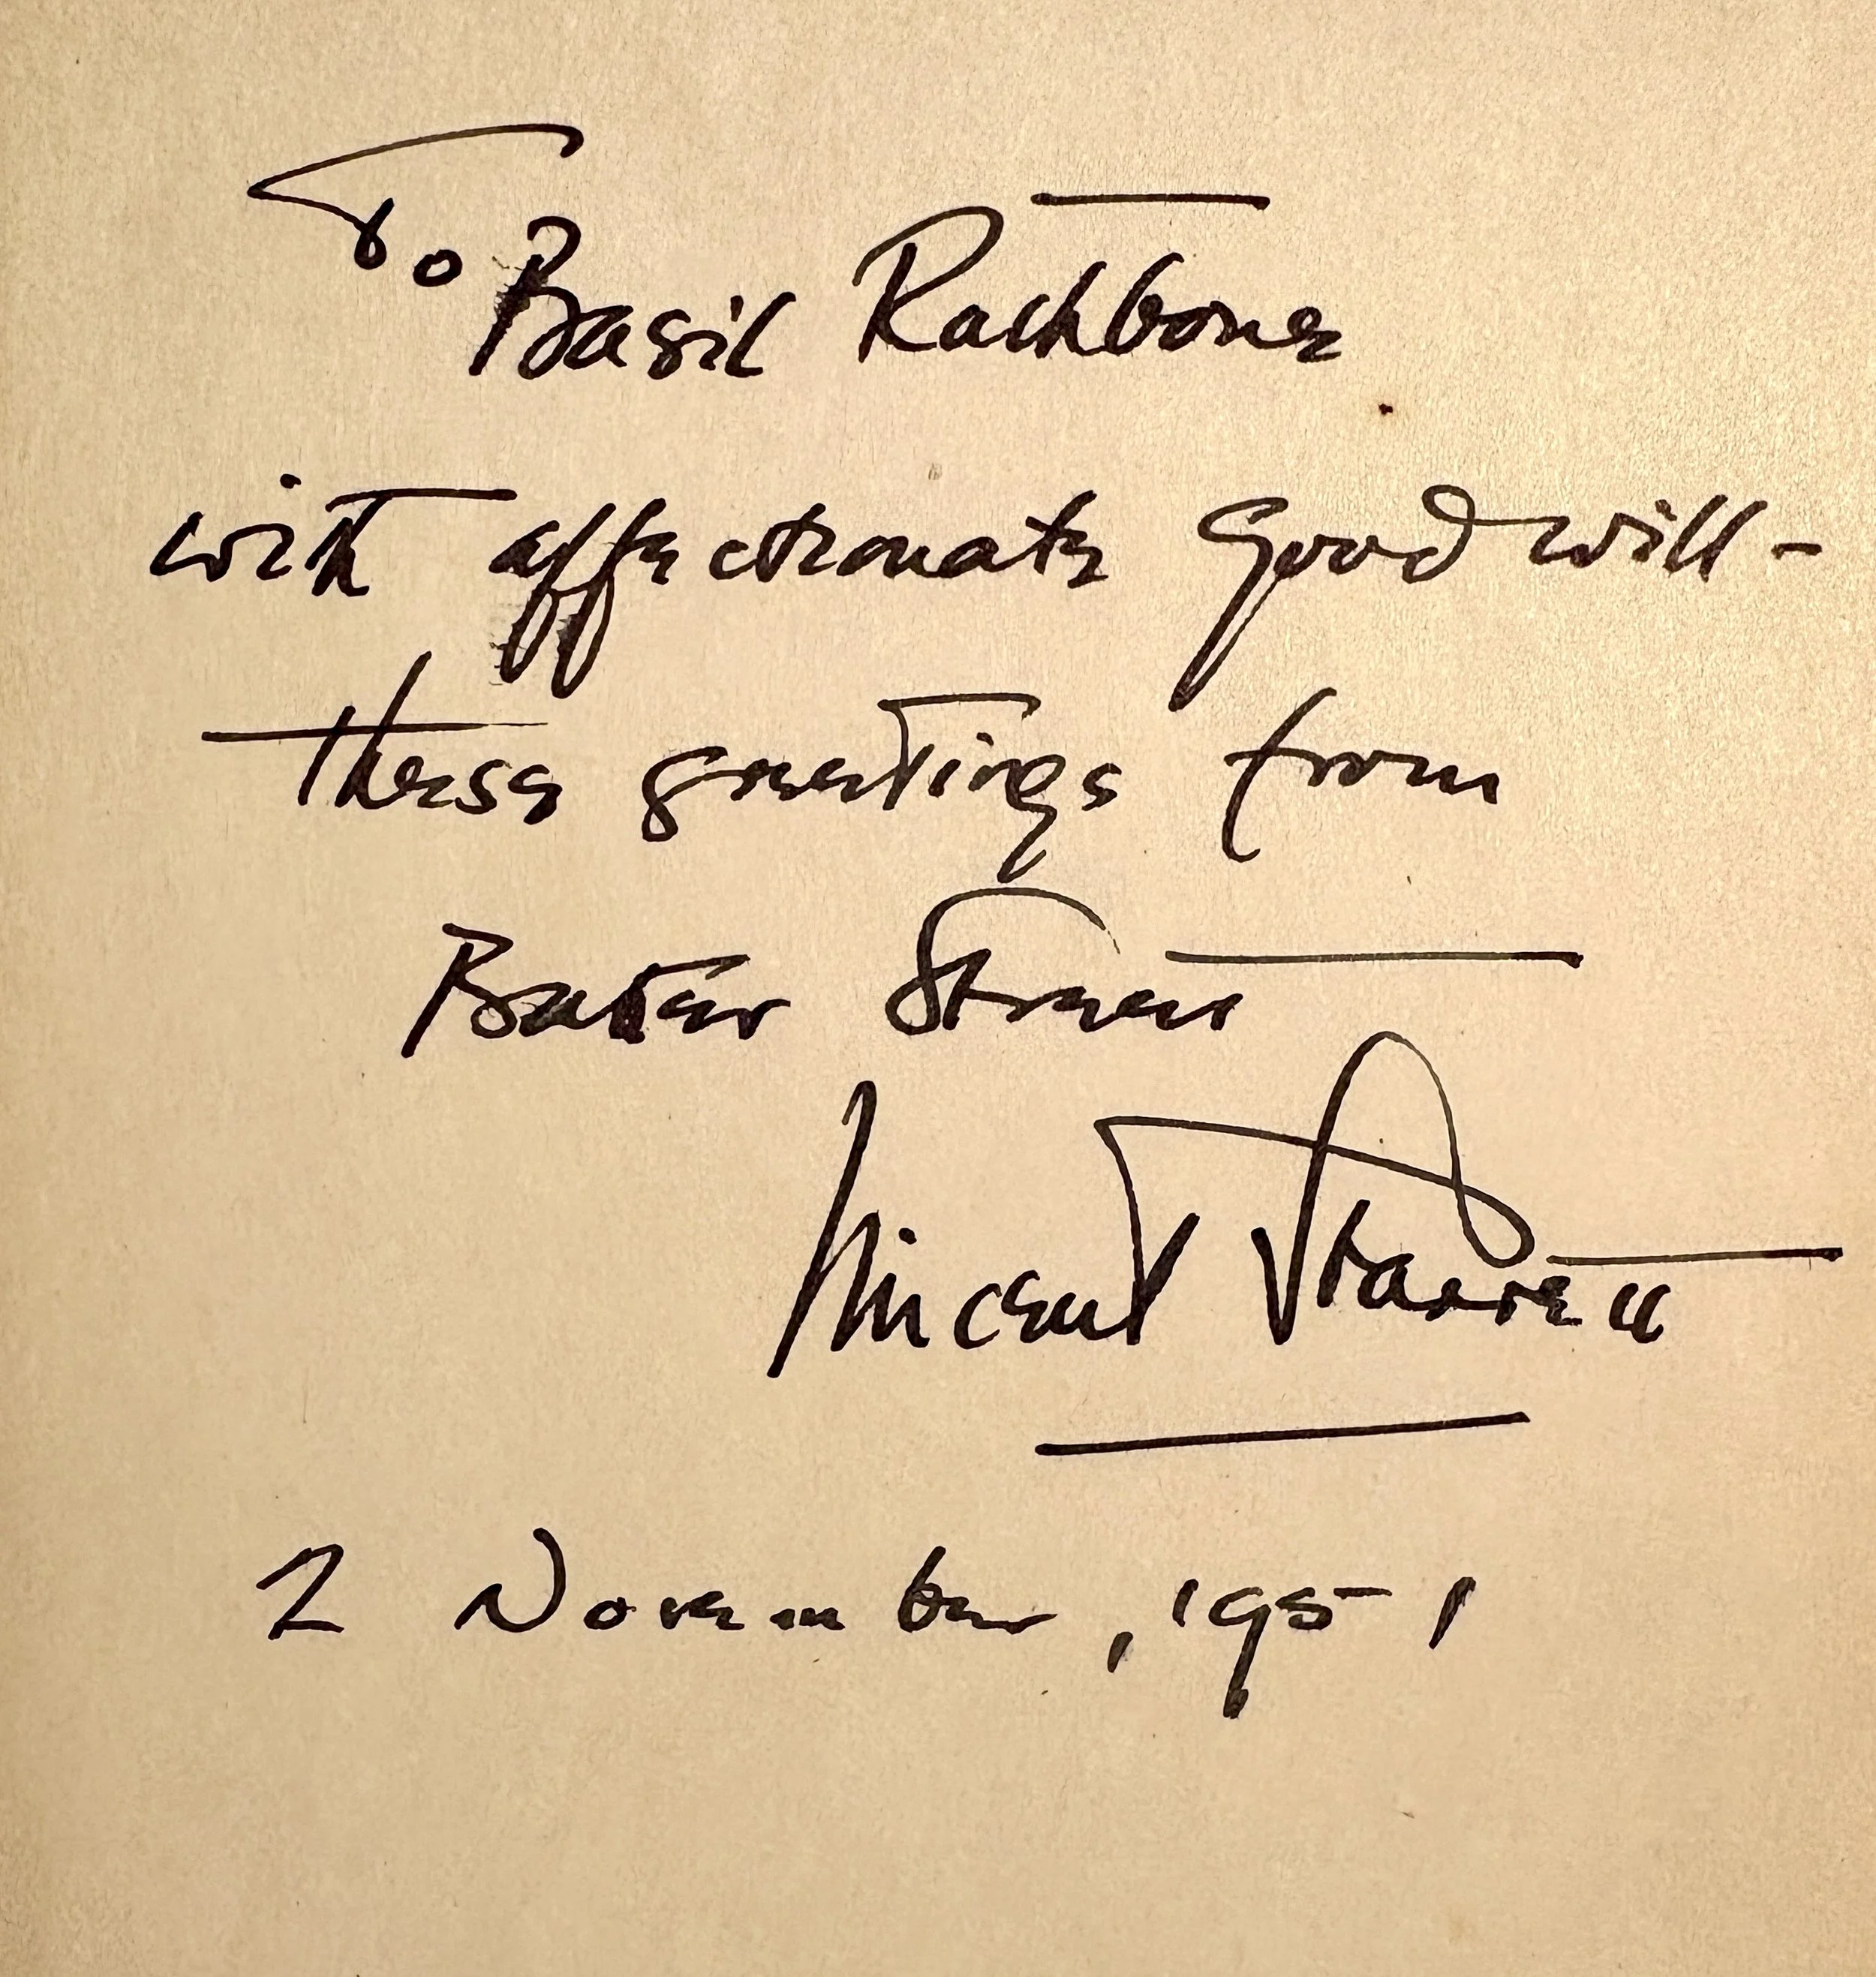 To Basil Rathbone
with affectionate good will -
these greetings from
Baker Street
Vincent Starrett
2 November, 1951